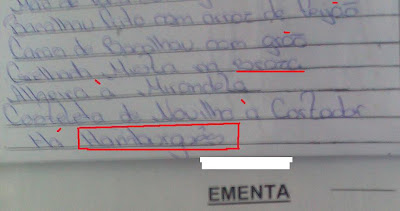 Bacalhau Frito com arroz de Feijão
Caras de Bacalhau com grão
Grelhada Mista na braza
Alheira à Mirandela
Costeleta de Novilho à Cortador
Há Hamburgués
EMENTA